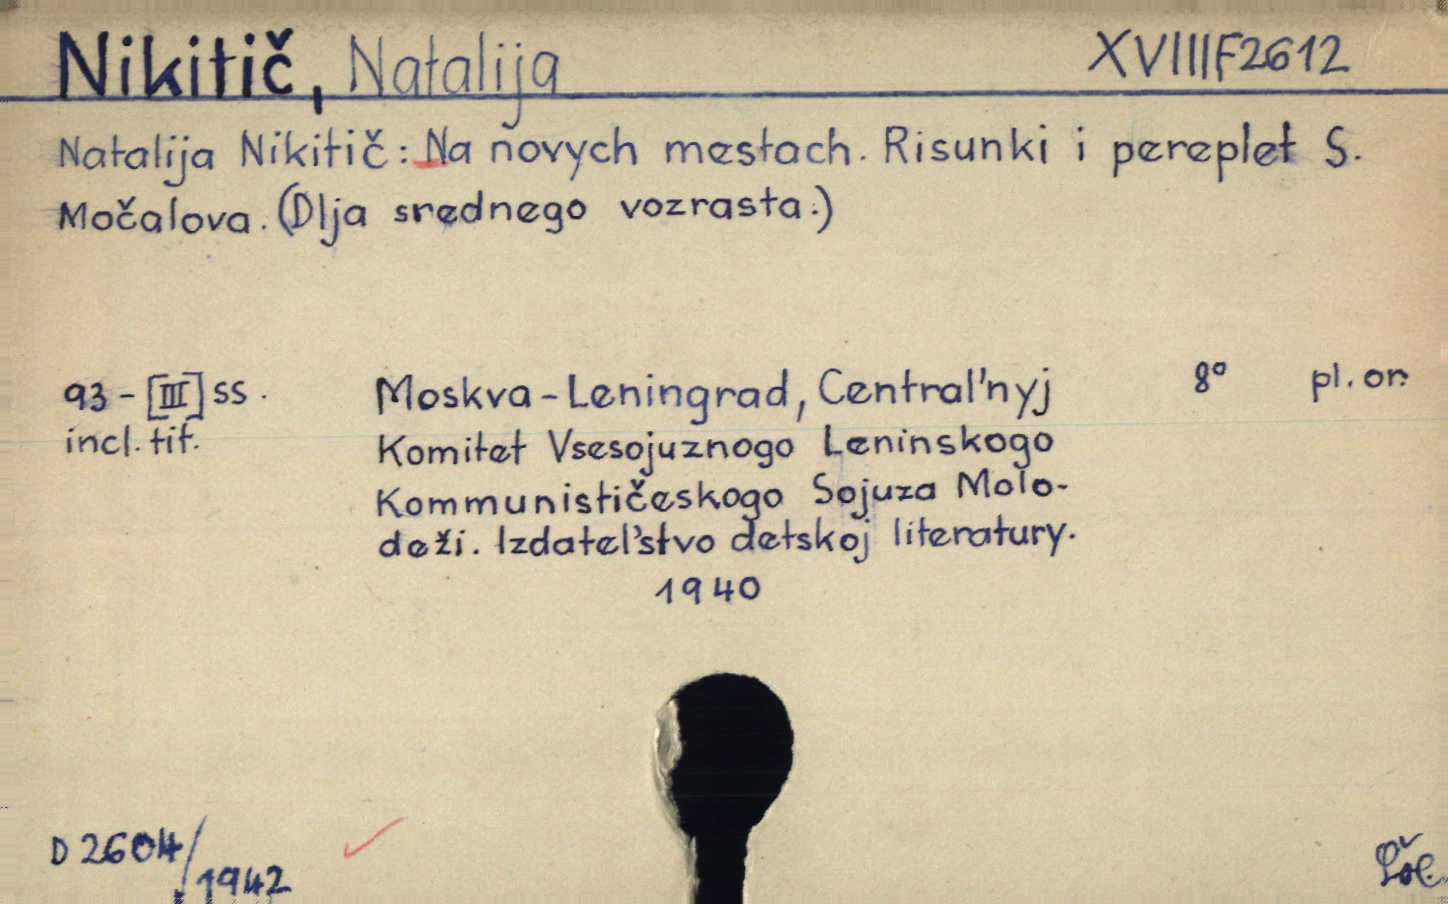 Nikitič, Natalija XVIIIF2612
Natalija Nikitič: Na novych mestach. Risunki i pereplet S.
Močalova. (Dlja srednego vozrasta.)
93 - [III] ss. Moskva-Leningrad, Central'nyj 8° pl. or.
incl. tit. Komitet Vsesojuznogo Leninskogo
Kommunističeskogo Sojuza Molo-
deži. Izdatel'stvo detskoj literatury.
1940
D 2604/1942